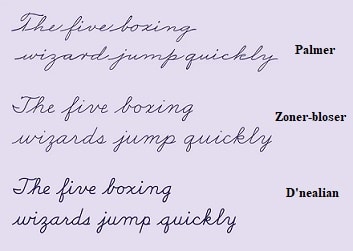 The five boxing
wizard jump quickly
Palmer
The five boxing
wizards jump quickly
Zoner-bloser
The five boxing
wizards jump quickly
D'nealian